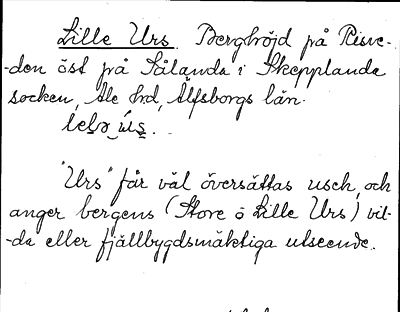 Lille Urs. Berghöjd på Risve-
-den öst på Sålanda i Skepplanda
socken, Ale hrd, Älfsborgs län.
"Urs" får väl översättas usch, och
anger bergens (Store o Lille Urs) vil-
-da eller fjällbygdsmäktiga utseende.